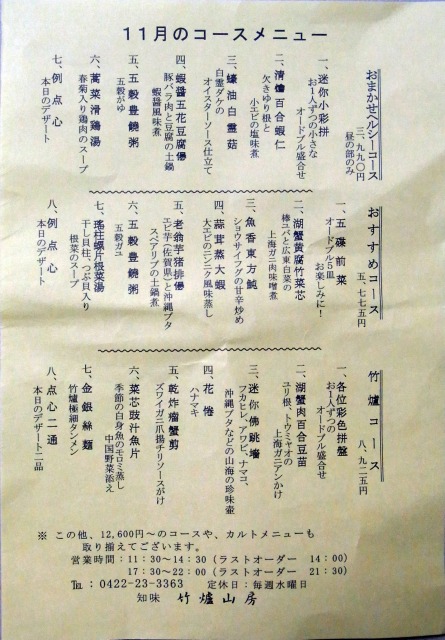 11月のコースメニュー
おまかせヘルシーコース
三、九九〇円
昼の部のみ
一、迷你小彩拼
お1人ずつの小さな
オードブル盛合せ
二、清燴百合蝦仁
欠きゆり根と
小エビの塩味煮
三、蠔油白霊菇
白霊ダケの
オイスターソース仕立て
四、蝦醤五花豆腐煲
豚バラ肉と豆腐の土鍋
蝦醤風味煮
五、五穀豊饒粥
五穀がゆ
六、蒿菜滑鶏湯
春菊入り鶏肉のスープ
七、例点心
本日のデザート
おすすめコース
五、七七五円
一、五碟前菜
オードブル5皿
お楽しみに!
二、湖蟹黄腐竹菜芯
棒ユバと広東白菜の
上海ガニ肉味噌煮
三、魚香東方魨
ショウサイフグの甘辛炒め
四、蒜茸蒸大蝦
大エビのニンニク風味蒸し
五、老翁芋猪排煲
エビ芋(佐賀県)と沖縄ブタ
スペアリブの土鍋煮
六、五穀豊饒粥
五穀ガユ
七、瑤柱螺片根菜湯
干し貝柱、つぶ貝入り
根菜のスープ
八、例点心
本日のデザート
竹爐コース
八、九二五円
一、各位彩色拼盤
お1人ずつの
オードブル盛合せ
二、湖蟹肉百合豆苗
ユリ根、トウミャオの
上海ガニアンかけ
三、迷你佛跳墻
フカヒレ、アワビ、ナマコ、
沖縄ブタなどの山海の珍味壷
四、花惓
ハナマキ
五、乾炸熘蟹剪
ズワイガニ爪揚チリソースがけ
六、菜芯豉汁魚片
季節の白身魚のモロミ蒸し
中国野菜添え
七、金銀絲麺
竹爐極細タンメン
八、点心二通
本日のデザート二品
※ この他、12,600円~のコースや、カルトメニューも
取り揃えてございます。
営業時間:11:30~14:30(ラストオーダー 14:00)
17:30~22:00(ラストオーダー 21:30)
℡:0422-23-3363 定休日:毎週水曜日
知味 竹爐山房